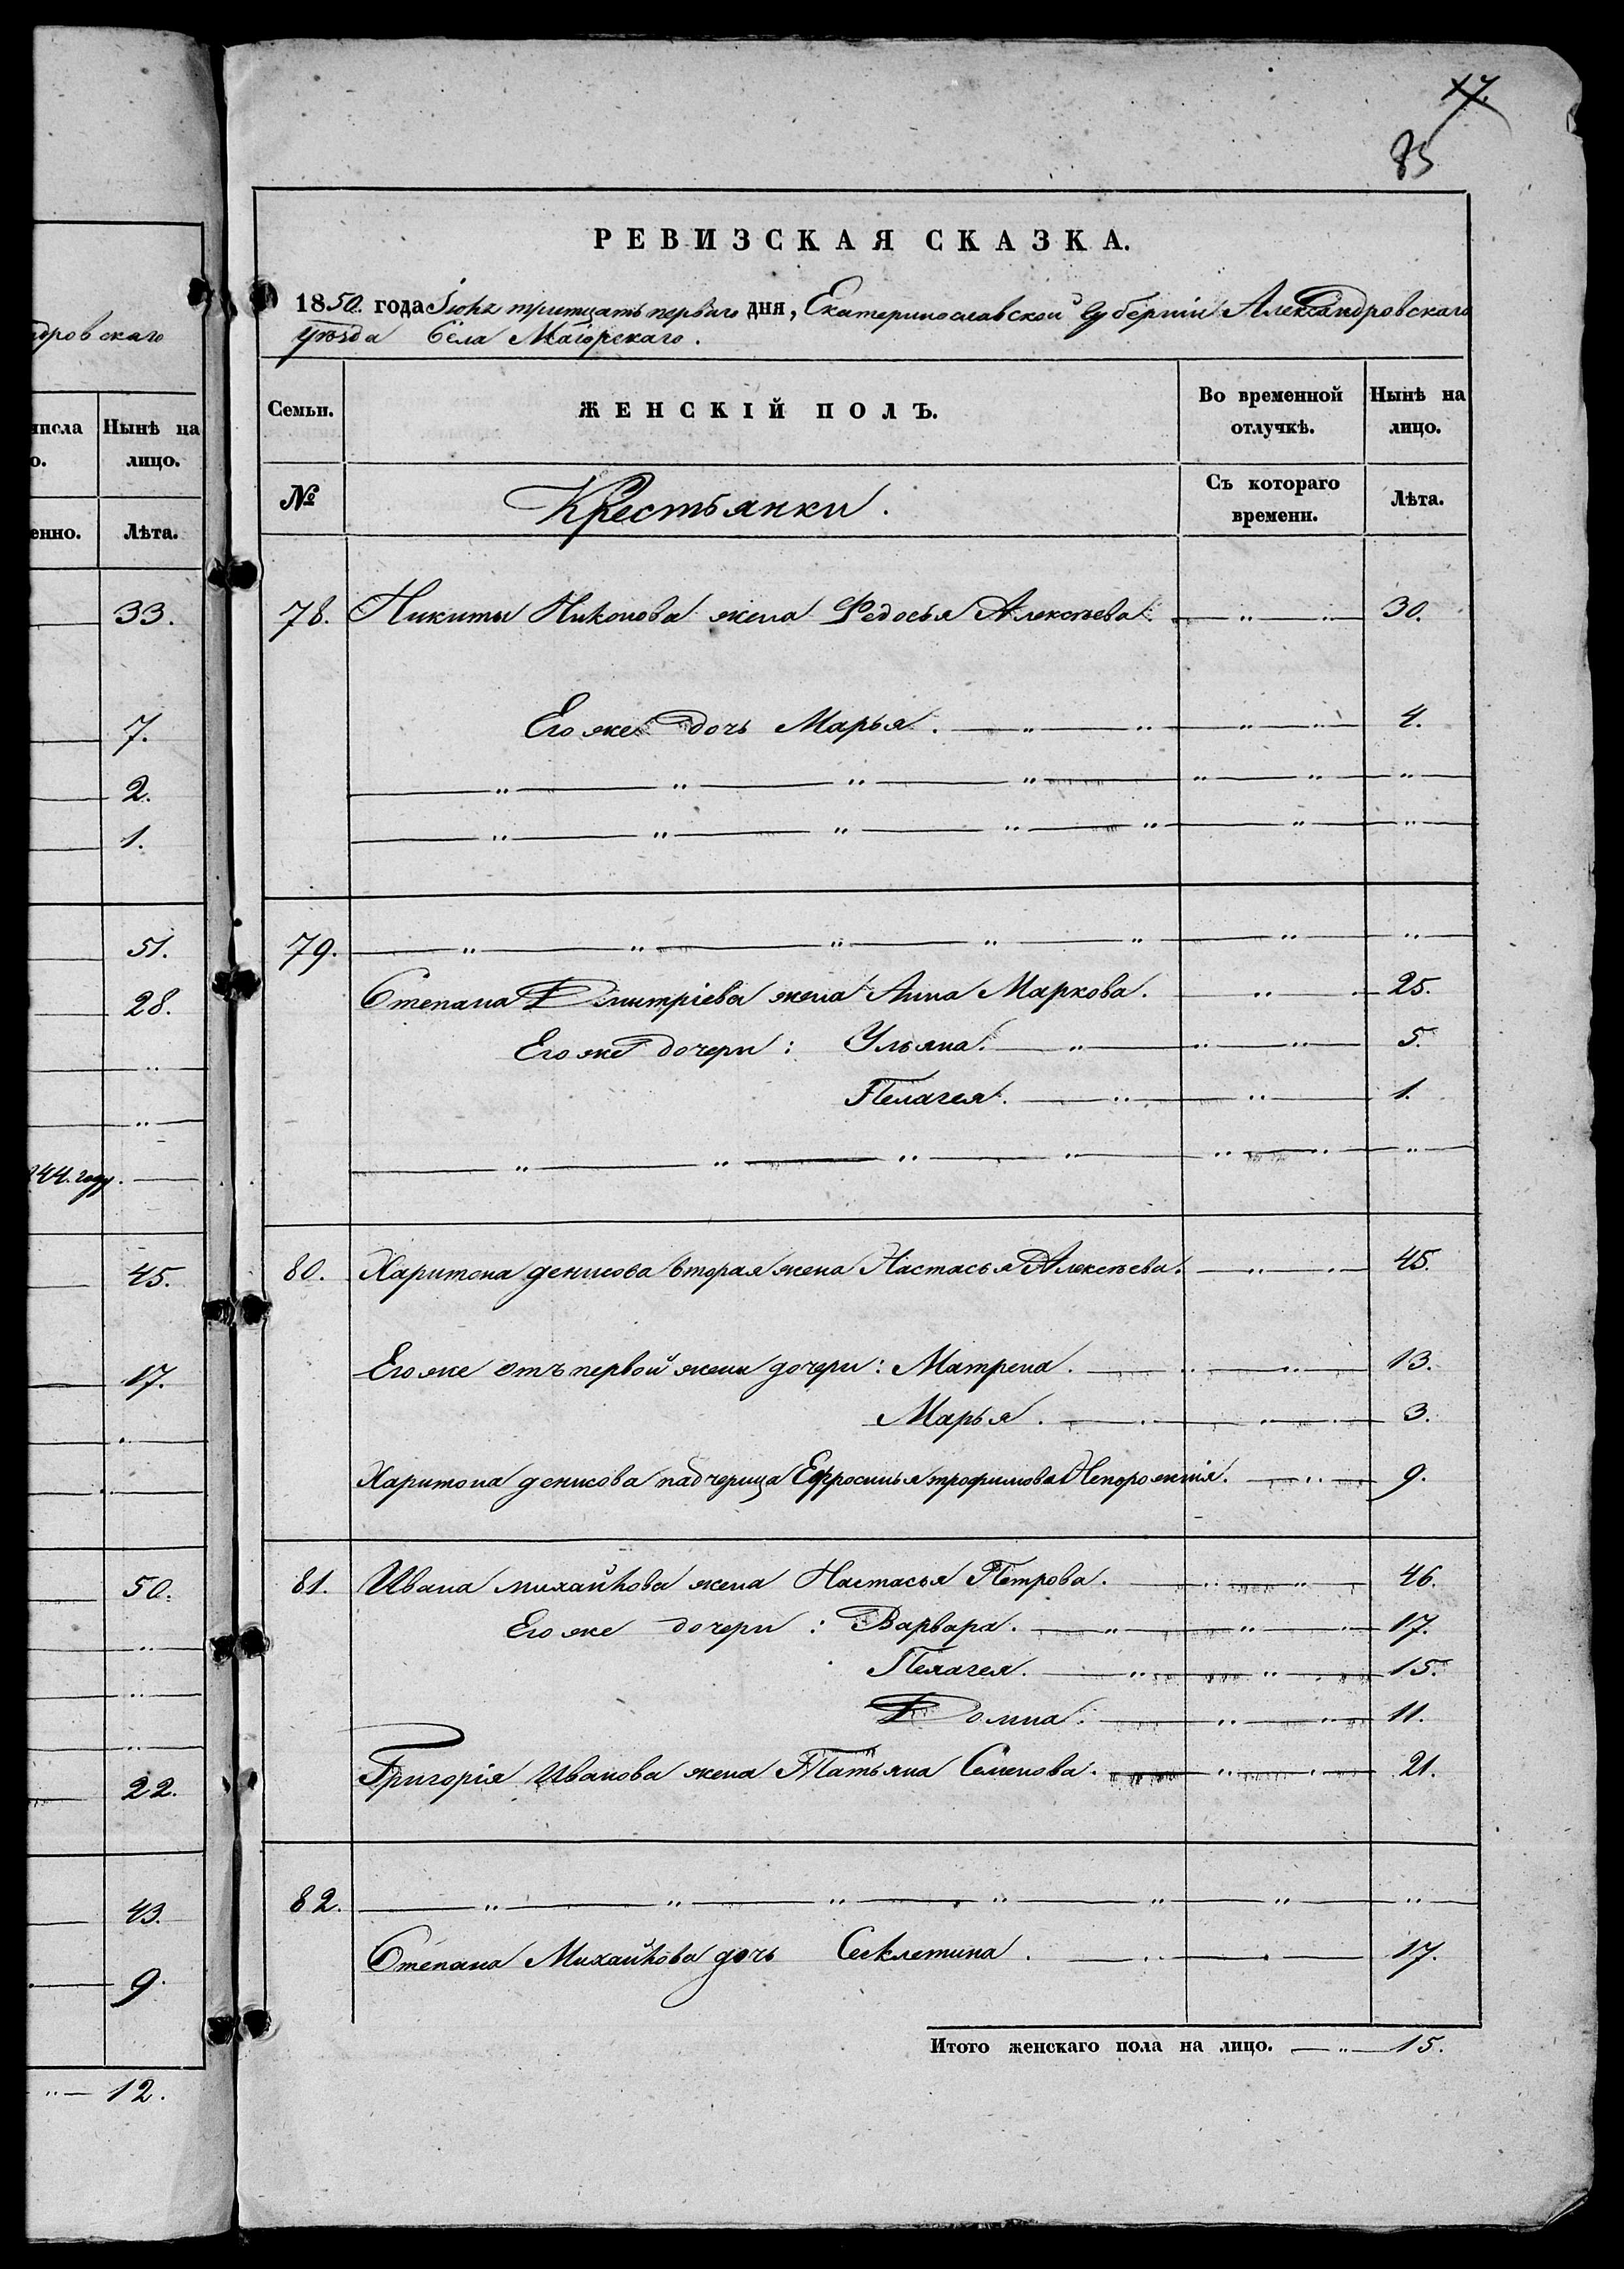 дровскаго
числа
о.
Нынѣ на
лицо.
енно.
Лѣта.
33.
7.
2.
1.
51.
28.
"
"
844. году.
45.
17.
"
50.
"
"
"
22.
43.
9.
" 12.
17.
85
РЕВИЗСКАЯ СКАЗКА.
1850. года Іюня тритцать перваго дня, Екатеринославской Губерніи Александровскаго
уѣзда Села Маіорскаго.
Семьи. ЖЕНСКІЙ ПОЛЪ. Во временной Нынѣ на
отлучкѣ. лицо.
№ Крестьянки. Съ котораго Лѣта.
времени.
78. Никиты Никонова жена Федосья Алексѣева. " " 30.
Его же дочь Марья. " " " " 4.
" " " " " " "
" " " " " " "
79. " " " " " " "
Степана Дмитріева жена Анна Маркова. " 25.
Его же дочери: Ульяна. " " " 5.
Пелагея. " " 1.
" " " " " " "
80. Харитона денисова вторая жена Настасья Алексѣева. " 45.
Его же отъ первой жены дочери: Матрена. " " 13.
Марья. 3.
Харитона денисова падчерица Ефросинья трофимова Непорожняя. " 9.
81. Ивана михайкова жена Настасья Петрова. " " 46.
Его же дочери: Варвара. " " 17.
Пелагея. " " 15.
Домна. " " 11.
Григорія Иванова жена Татьяна Семенова. " 21.
82. " " " " " " "
Степана Михайкова дочь Секлетина. " 17.
Итого женскаго пола на лицо. " 15.